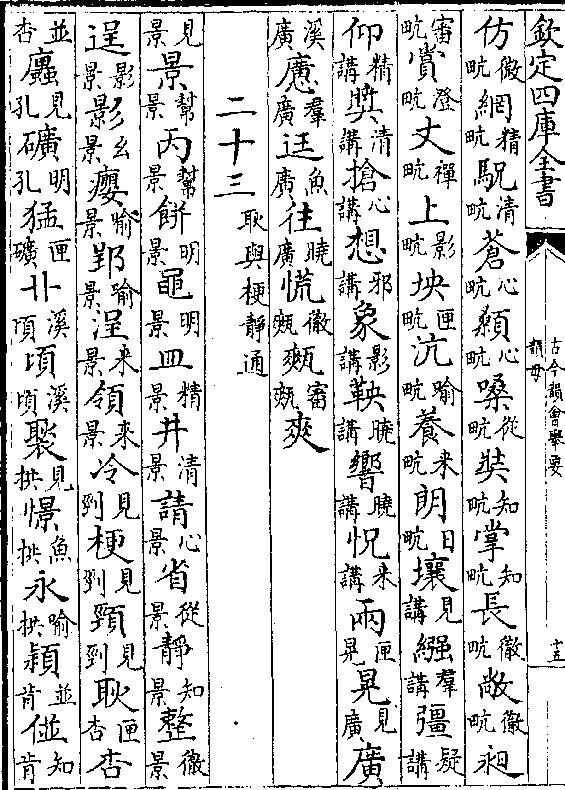 欽定四庫全書
古今韻會舉要
韻母
十五
仿微㽘網精㽘駔清㽘蒼心㽘顙心㽘嗓從㽘奘知㽘掌知㽘長徹㽘敞徹㽘昶
審㽘賞澄㽘丈禪㽘上影㽘坱匣㽘沆喻㽘養来㽘朗日㽘壤見講繈羣講彊疑講
仰精講奬清講搶心講想邪講象影講鞅曉講響曉講怳来講兩匣晃晃見廣廣
溪廣懬羣廣迋魚廣往曉廣慌徹㼽㼽審㼽爽
二十三
耿與梗静通
見景景幫景丙幫景餅明景黽明景皿精景井清景請心景省從景靜知景整徹景
逞影景影幺景癭喻景郢喻景浧来景領来景冷見剄梗見剄頸見剄耿匣杏杏
並杏蠯見孔礦明孔猛匣礦丱溪頃頃溪頃褧見拱憬魚拱永喻拱潁並肯傡知肯